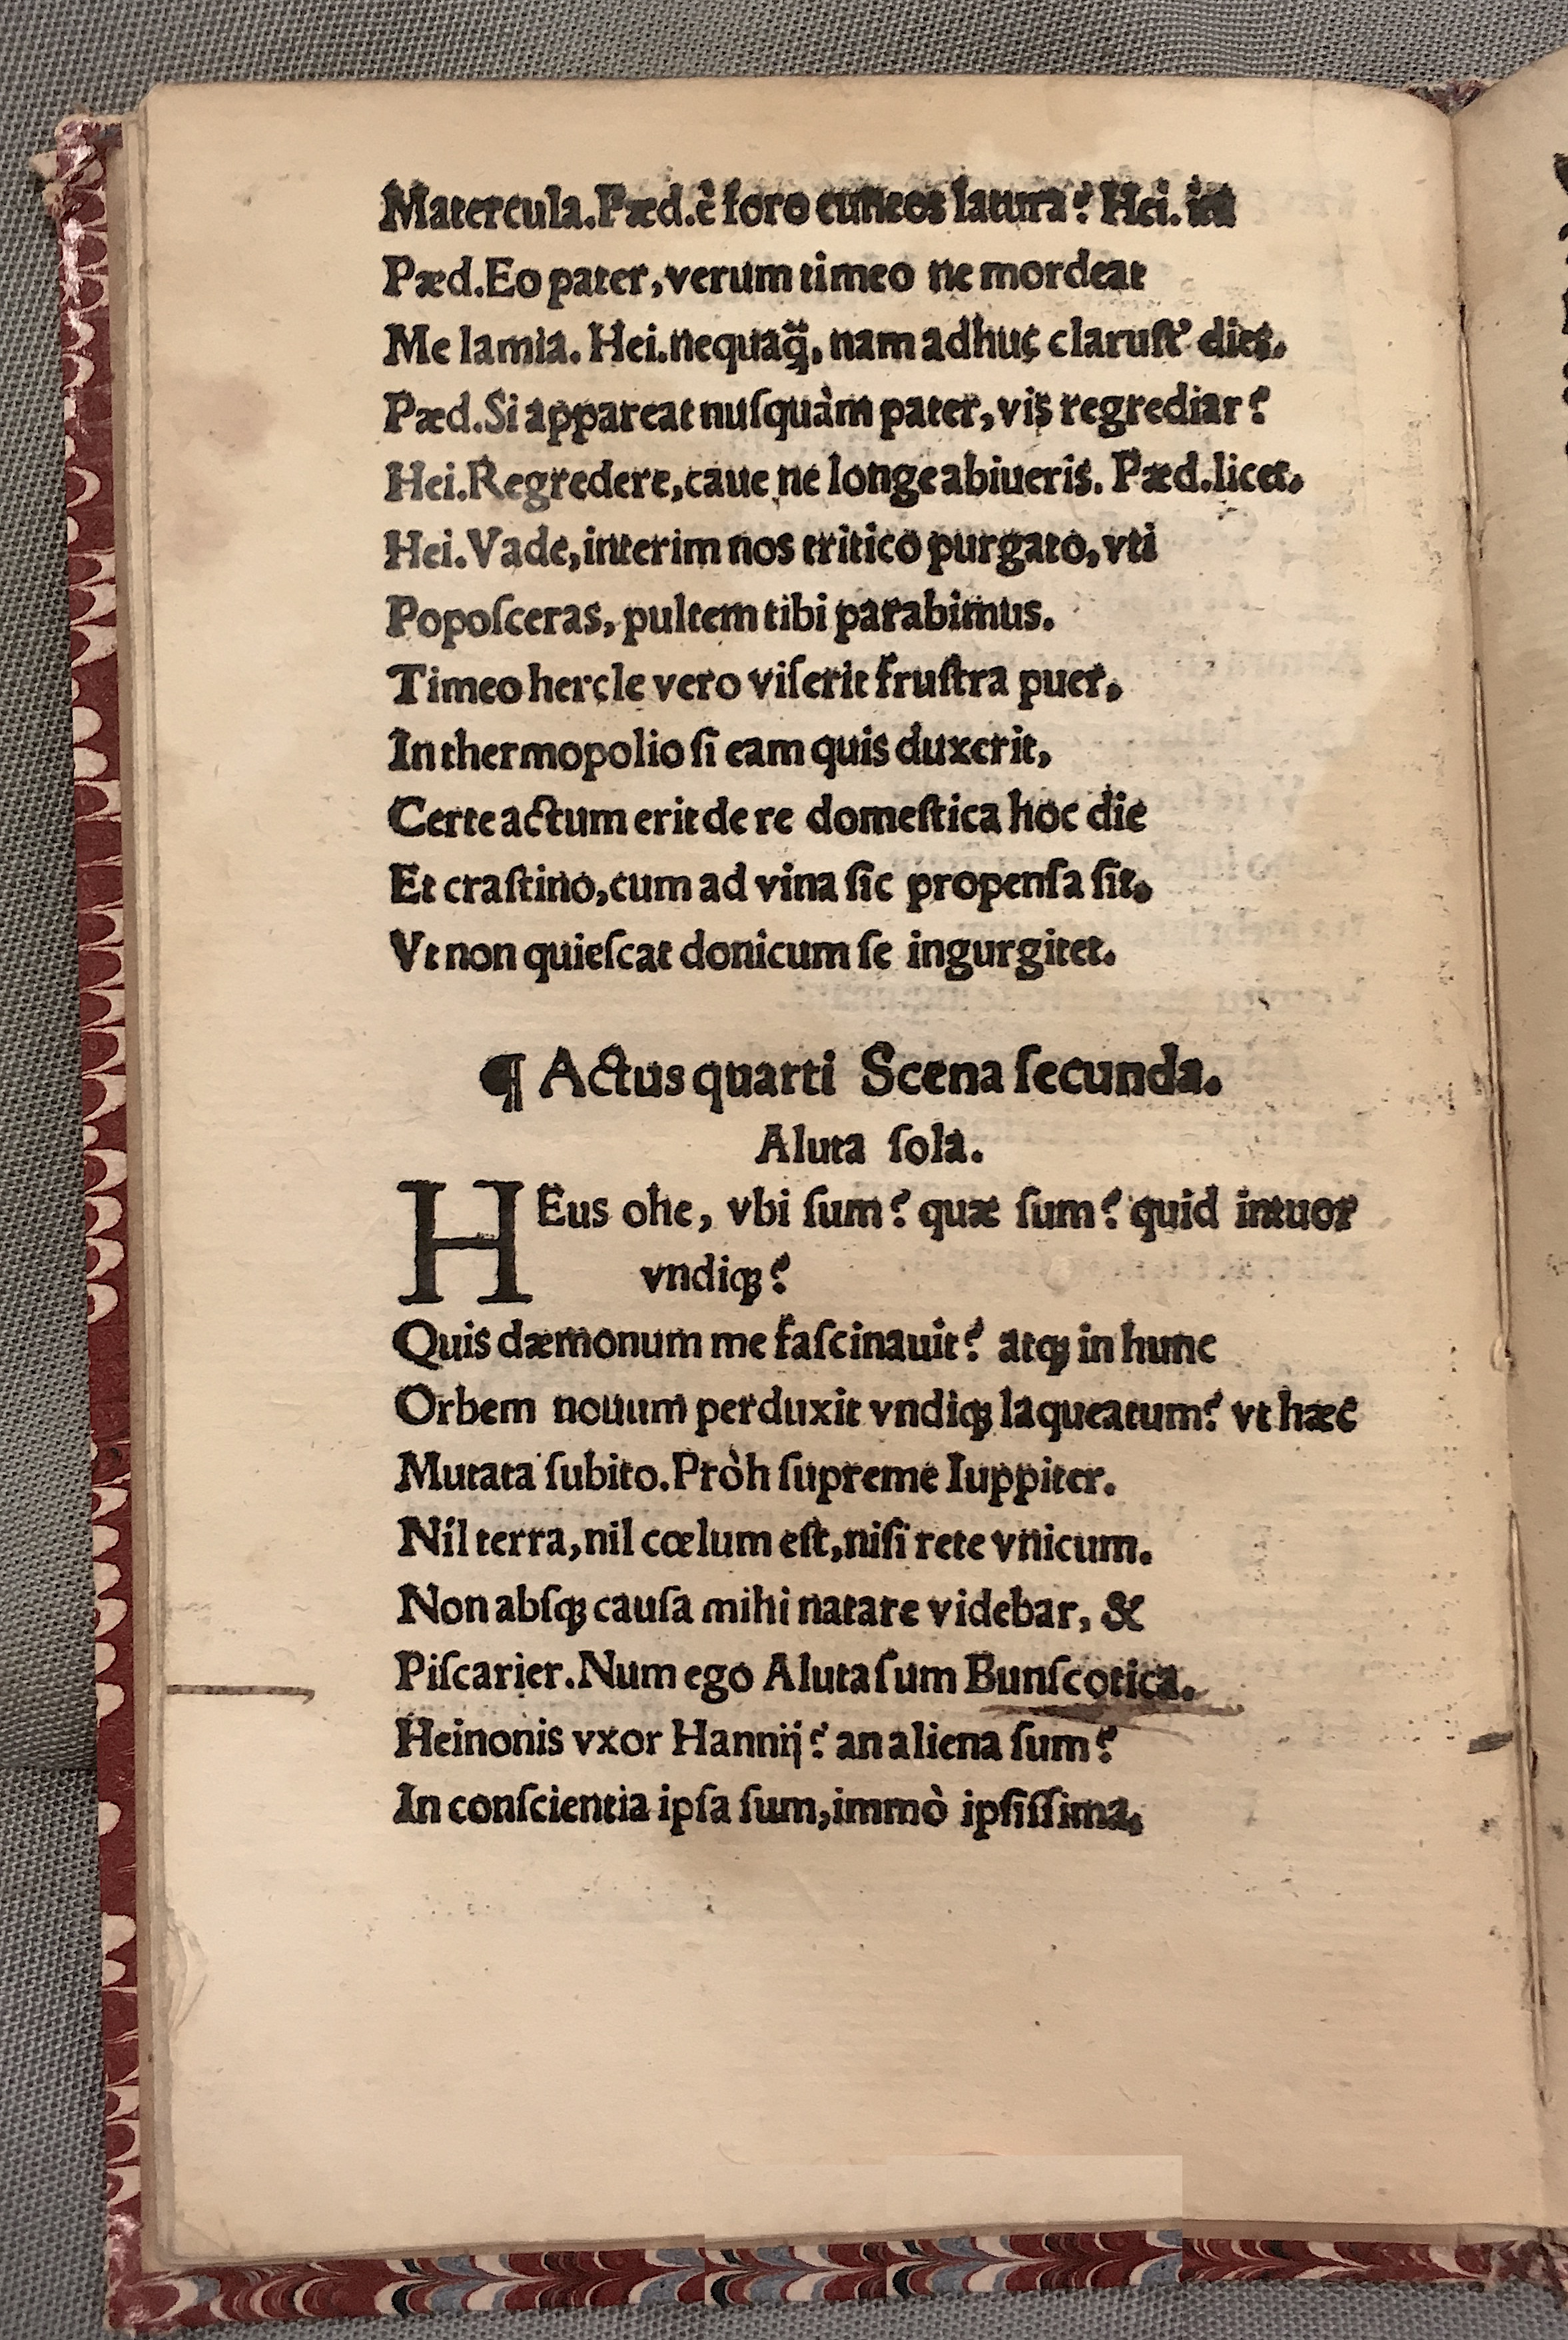 Matercula.Pæd.è foro cuneos latura? Hei. ita
Pæd.Eo pater,verum timeo ne mordeat
Me lamia. Hei.nequaq̃, nam adhuc claruſt' dies.
Pæd.Si appareat nuſquàm pater,vis regrediar?
Hei.Regredere,caue ne longe abiueris. Pæd.licet.
Hei.Vade,interim nos tritico purgato,vti
Popoſceras, pultem tibi parabimus.
Timeo hercle vero viſerit fruſtra puer.
In thermopolio ſi eam quis duxerit,
Certe actum erit de re domeſtica hoc die
Et craſtino,cum ad vina ſic propenſa ſit.
Vt non quieſcat donicum ſe ingurgitet.
¶ Actus quarti Scena ſecunda.
Aluta ſola.
HEus ohe, vbi ſum? quæ ſum? quid intuor
vndiqꝫ?
Quis dæmonum me faſcinauit? atqꝫ in hunc
Orbem nouum perduxit vndiqꝫ laqueatum? vt hæc
Mutata ſubito.Pròh ſupreme Iuppiter.
Nil terra,nil cœlum eſt,niſi rete vnicum.
Non abſqꝫ cauſa mihi natare videbar, &
Piſcarier.Num ego Aluta ſum Bunſcotica.
Heinonis vxor Hannij? an aliena ſum?
In conſcientia ipſa ſum,immò ipſiſſima.